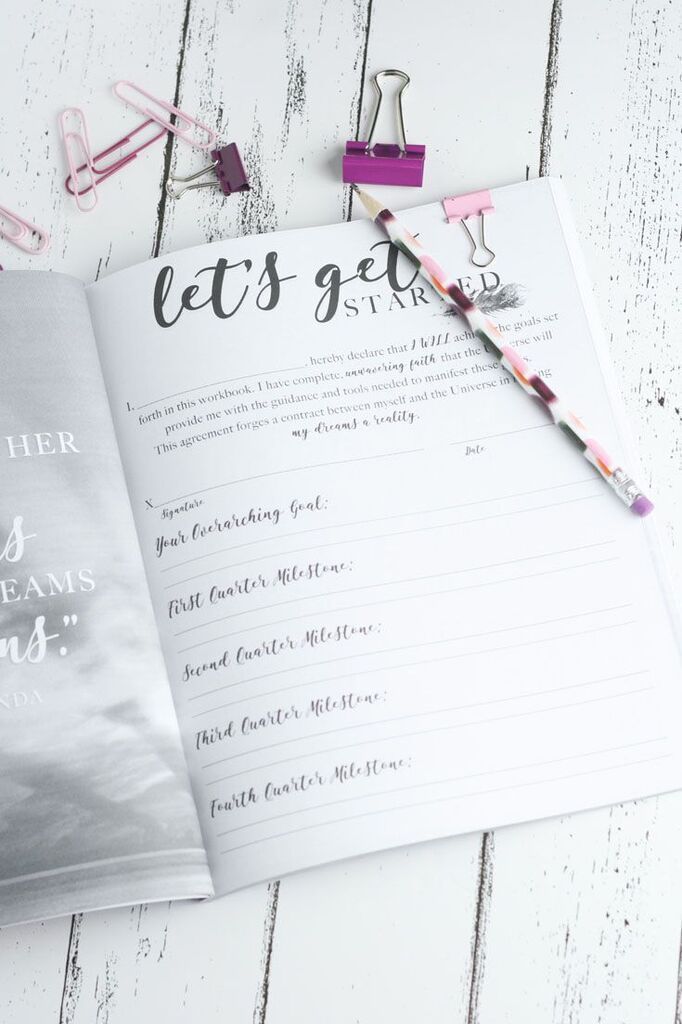 HER
s
EAMS
ns."
NDA
let's get
STARTED
I, , hereby declare that I WILL achieve the goals set
forth in this workbook. I have complete, unwavering faith that the Universe will
provide me with the guidance and tools needed to manifest these
This agreement forges a contract between myself and the Universe in
my dreams a reality.
X
Signature
Date
Your Overarching Goal:
First Quarter Milestone:
Second Quarter Milestone:
Third Quarter Milestone:
Fourth Quarter Milestone: